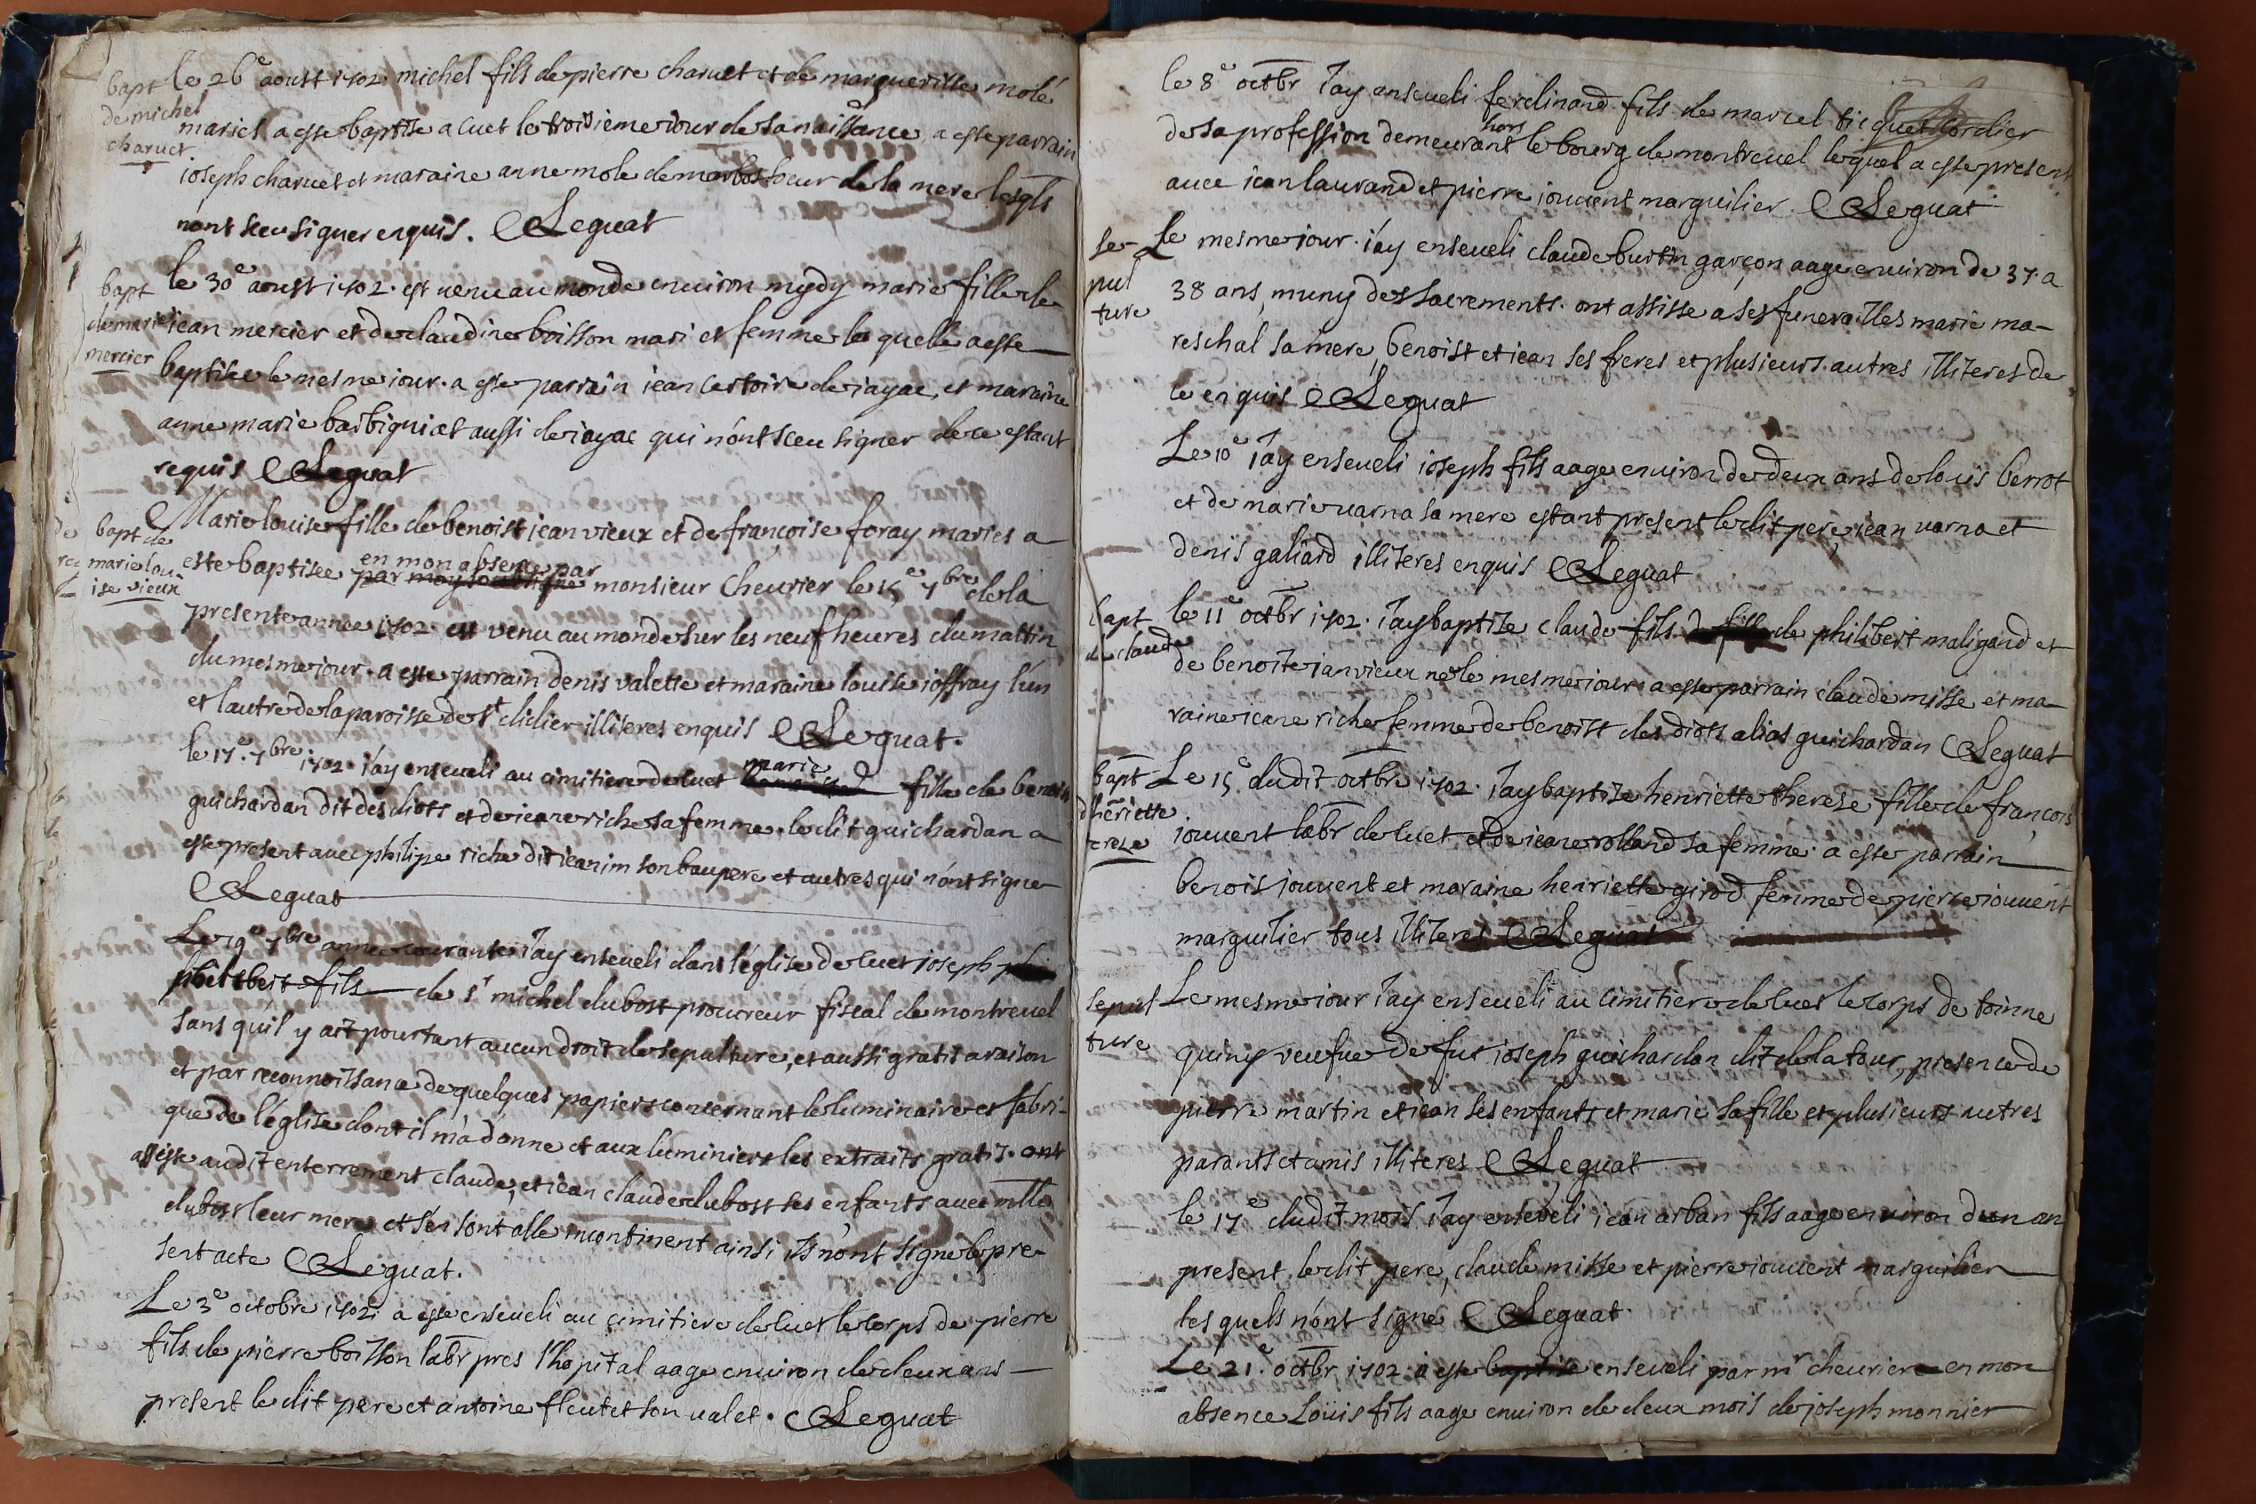 bapt
de michel
charuet
le 26e aoust 1702 michel fils de pierre charuet et de margueritte molé
mariés a este baptise a cuet le troisieme iour de sa naissance, a este parrain
ioseph charuet et maraine anne mole de marbos soeur de la mere lesqls
nont sceu signer enquis. Leguat
bapt
de marie
mercier
le 30e aoust 1702. est venu au monde environ mydy marie fille de
iean mercier et de claudine boisson mari et femme la quelle a este
baptisée le mesme iour. a este parrain iean certoire de iayac, et maraine
anne marie barbiguiat aussi de iayac qui n'ont sceu signer de ce estant
requis Leguat
bapt de
marie lou
ise vieux
Marie louise fille de benoist iean vieux et de françoise foray mariés a
en mon absence par
este baptisee par moy soubsigne monsieur cheurier le 15e 7bre de la
presente annee 1702. est venu au monde sur les neuf heures du mattin
du mesme iour. a este parrain denis valette et maraine louise ioffray l'un
et lautre de la paroisse de st didier illiteres enquis Leguat.
le 17e. 7bre 1702. i'ay enseueli au cimitiere de cuet marie fille de benoist
guichardan dit des diots et de ieane riche sa femme. le dit guichardan a
este present avec philipe riche dit ieanim son baupere et autres qui n'ont signe
Leguat
Le 19e 7bre annee courante i'ay enseueli dans l'église de cuet ioseph
philibert fils de sr michel dubost procureur fiscal de montreuel
sans quil y ait pourtant aucun droit de sepulture, et aussi gratis a raison
et par reconnoissance de quelques papiers concernant le luminaire et fabri-
que de l'église dont il m'a donne et aux luminiers les extraits gratis. ont
assiste audit enterrement claude, et iean claude dubost ses enfants avec mlle
dubost leur mere et s'en sont alle incontinent ainsi ils n'ont signé le pre-
sent acte Leguat.
Le 3e octobre 1702 a este enseueli au cimitiere de cuet le corps de pierre
fils de pierre boisson labr pres l'hopital aage environ de deux ans
present le dit pere et antoine fleutet son valet. Leguat
le 8e octbr i'ay enseueli ferdinand fils de marcel ticquet cordier
hors
de sa profession demeurant le bourg de montreuel lequel a este present
auec iean laurand et pierre iouuent marguilier. Leguat
se-
pul
ture
Le mesme iour. i'ay enseueli claude burtin garçon aage environ de 37. a
38 ans, muny des sacrements. ont assisse a ses funerailles marie ma-
reschal sa mere, benoist et iean ses freres et plusieurs autres illiteres de
ce enquis Leguat
Le 10e i'ay enseueli ioseph fils aage environ de deux ans de louis berrot
et de marie varna sa mere estant present le dit pere, iean varna et
denis galiard illiteres enquis Leguat
bapt
de claude
le 11e octbr 1702. i'ay baptise claude fils de philibert maligand et
de benoite ianvieux ne le mesme iour. a este parrain claude misse et ma-
raine ieane riche femme de benoist des diots alias guichardan Leguat
bapt
d'henriette
erese
Le 15e. dudit octbre 1702. i'ay baptise henriette therese fille de françois
iouuent labr de cuet et de ieane rolland sa femme. a este parrain
benois iouuent et maraine henriette girod femme de pierre iouuent
marguilier tous illiteres Leguat
sepul
ture
Le mesme iour i'ay enseueli au cimitiere de cuet le corps de toinne
quiny veufue de fut ioseph guichardan dit de la tour, presence de
pierre martin et iean ses enfants et marie sa fille et plusieurs autres
parants et amis illiteres Leguat
le 17e dudit mois i'ay enseueli iean arban fils aage environ d'un an
present le dit pere, claude misse et pierre iouuent marguilier
les quels n'ont signé Leguat.
Le 21e. octbr 1702 a este baptise enseueli par mr cheurier en mon
absence Louis fils aage environ de deux mois de joseph monnier